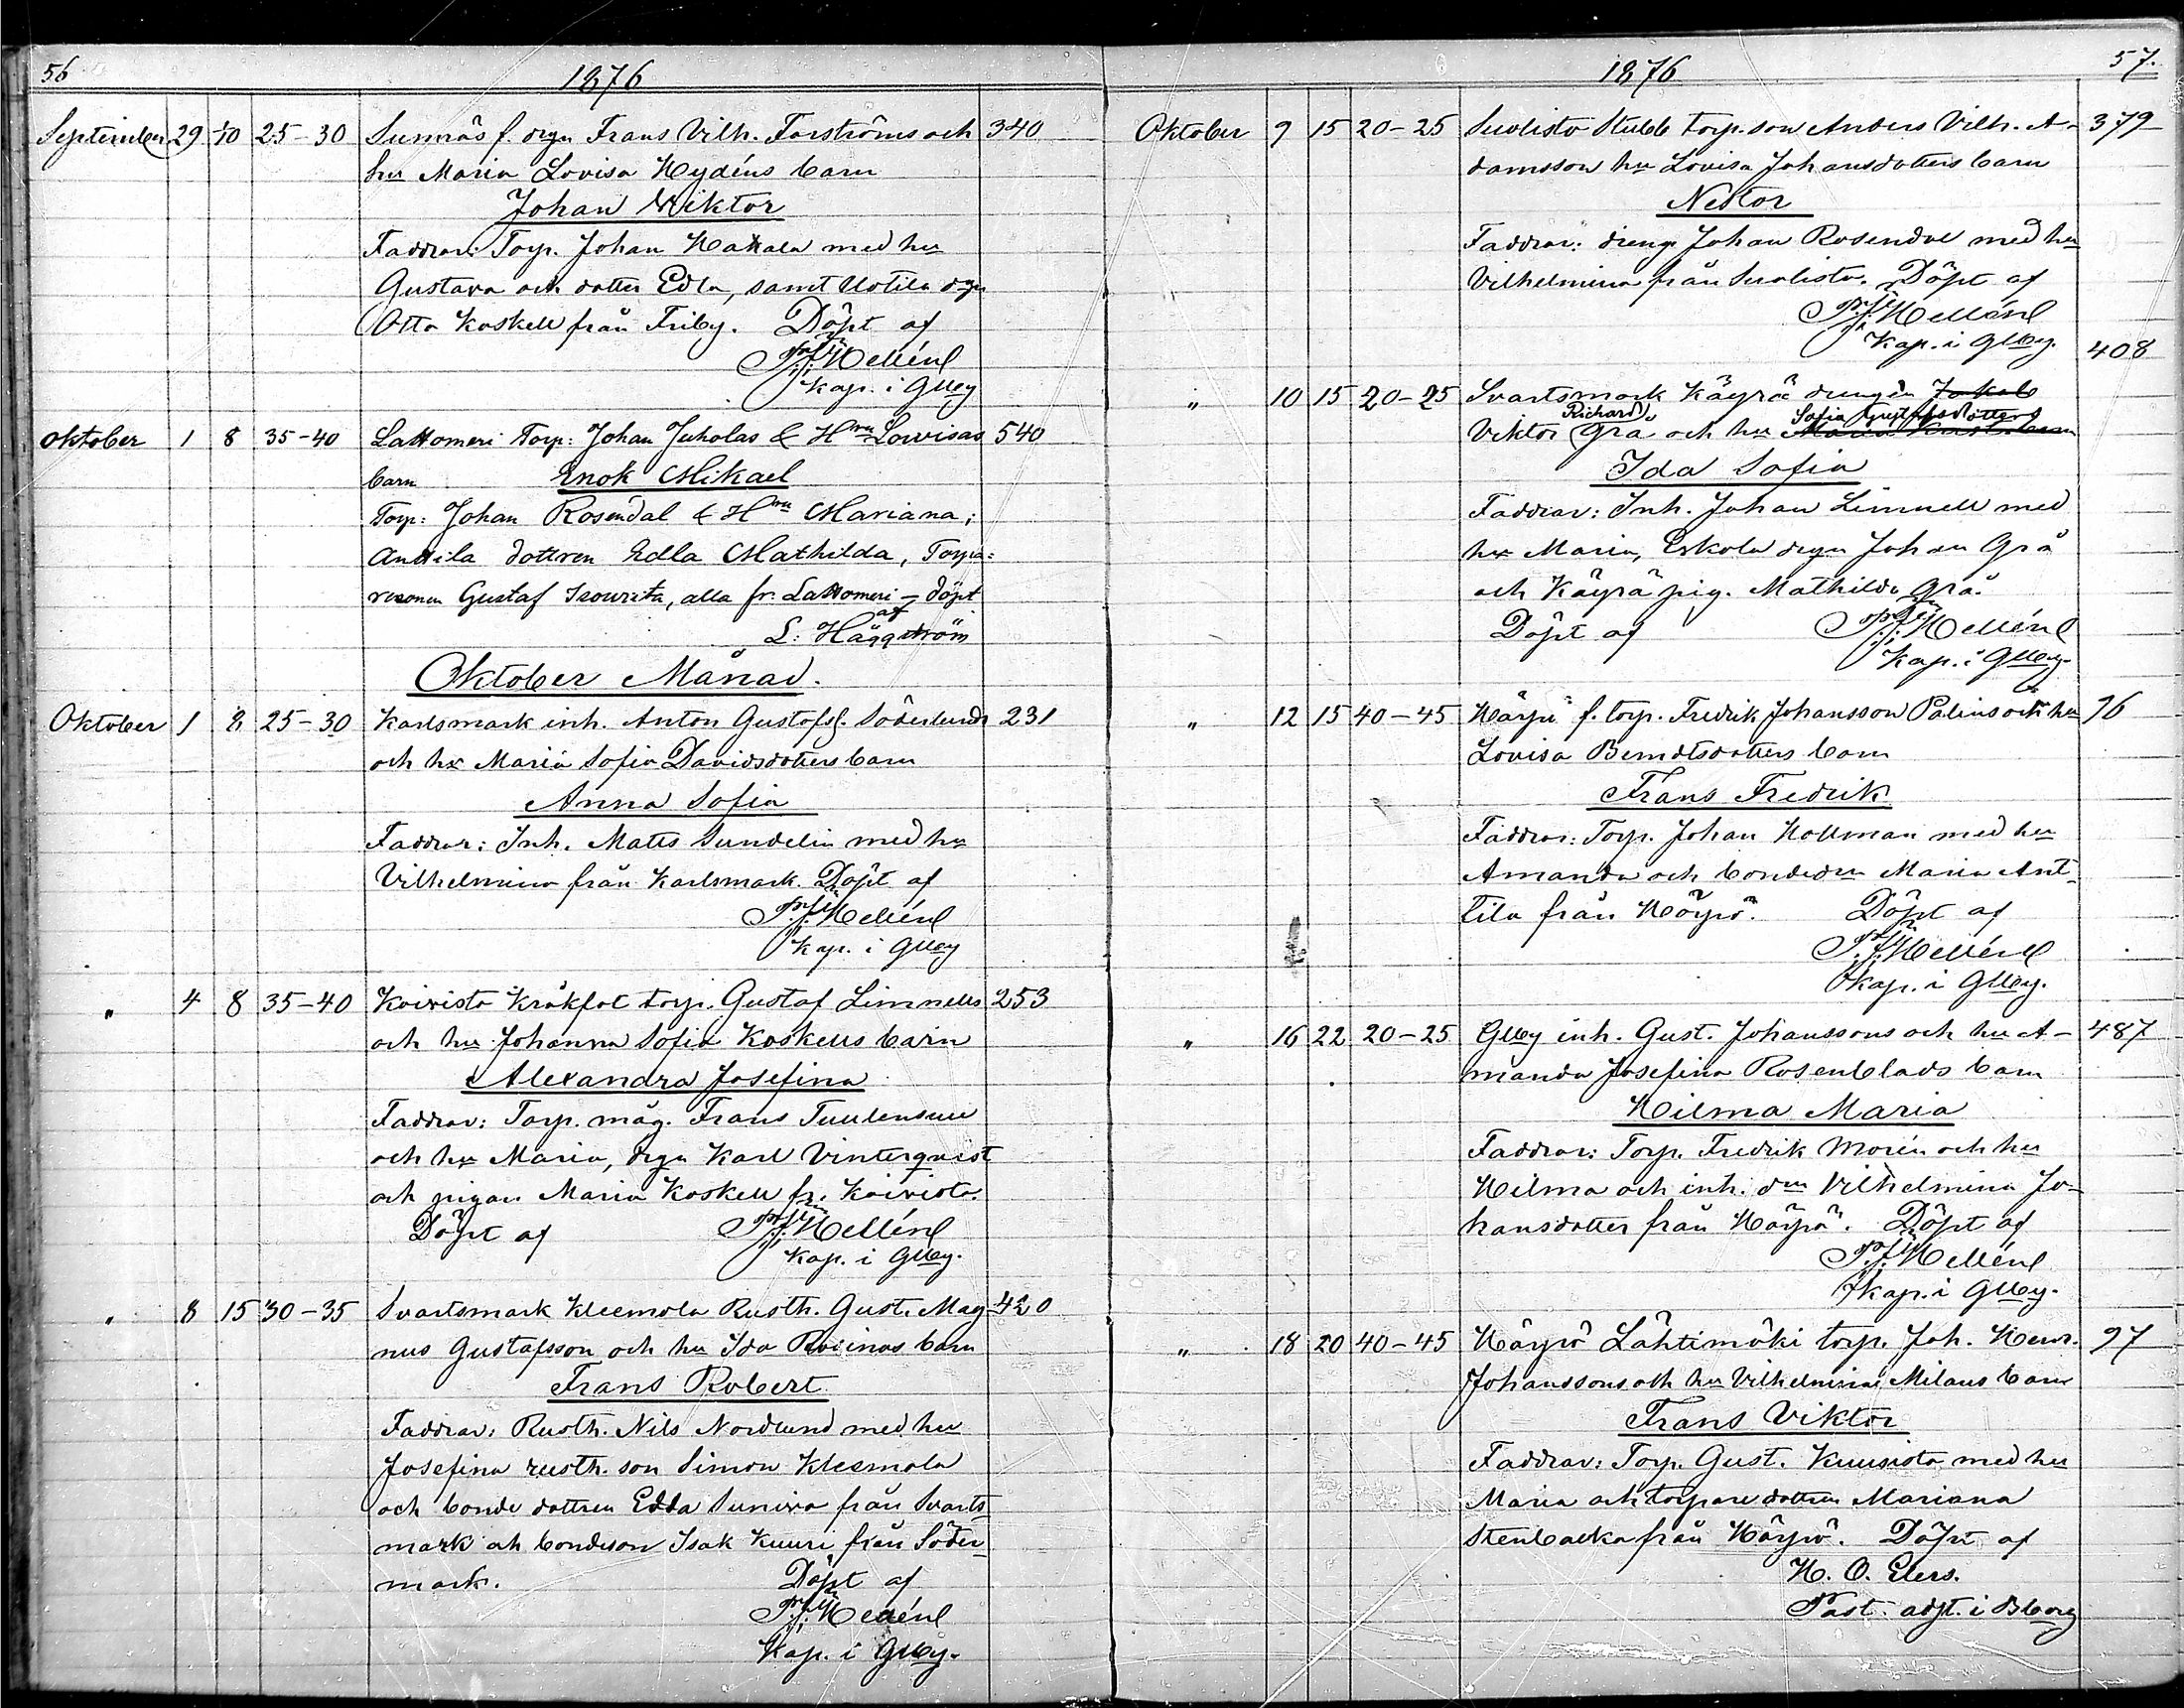 56
1876
September 29 1/10 25-30 Sunnäs f. drgn Frans Vilh. Forströms och 340
hu Maria Lovisa Hydéns barn
Johan Wiktor
Faddrar: Torp. Johan Hattala med hu
Gustava och dotter Edla, samt Uotila dgn
Otto Koskell från Friby. Döpt af
Hellénl
Kap. i Gllby
Oktober 1 8 35-40 Lattomeri Torp: Johan Juholas & Hru Lowisas 540
barn Enok Mikael
Torp: Johan Rosendal & Hru Mariana;
Anttila dottren Edla Mathilda, Torpa=
resonen Gustaf Isowirta, alla fr. Lattomeri – döpt
af
L: Häggström
Oktober Månad.
Oktober 1 8 25-30 Karlsmark inh. Anton Gustafss. Söderlunds 231
och hu Maria Sofia Davidsdotters barn
Anna Sofia
Faddrar: Inh. Matts Sundelin med hu
Vilhelmina från Karlsmark. Döpt af
Hellénl
Kap. i Gllby
" 4 8 35-40 Koivisto Kråkfot torp. Gustaf Limnells 253
och hu Johanna Sofia Koskells barn
Alexandra Josefina
Faddrar: Torp. måg. Frans Tuulensuu
och hu Maria, drgn Karl Vinterqvist
och pigan Maria Koskell fr. Koivisto.
Döpt af Hellénl
Kap. i Gllby.
" 8 15 30-35 Svartsmark Kleemola Rusth. Gust. Mag- 420
nus Gustafsson och hu Ida barn
Frans Robert
Faddrar: Rusth. Nils Nordlund med hu
Josefina rusth. son Simon Kleemola
och bonde dottren Edda Suniva från Svarts-
mark och bondeson Isak Kuuri från Söder-
mark. Döpt af
Hellénl
Kap. i Gllby.
1876
57.
Oktober 9 15 20-25 Suolisto Stubb torp. son Anders Vilh. A- 379
damsson hu Lovisa Johansdotters barn
Nestor
Faddrar: dreng. Johan Rosendal med hu
Vilhelmina från Suolisto. Döpt af
Hellénl
Kap. i Gllby.
408
" 10 15 20-25 Svartsmark Käyrä drengen Jakob
Richard Sofia dotters
Viktor Grå och hu Maria barn
Ida Sofia
Faddrar: Inh. Johan Limnell med
hu Maria, Eskola drgn Johan Grå
och Käyrä pig. Mathilda Grå.
Döpt af Hellénl
Kap. i Gllby.
" 12 15 40-45 Härpö f. torp. Fredrik Johansson Palins och hu 96
Lovisa Berndtsdotters barn
Frans Fredrik
Faddrar: Torp. Johan Hollman med hu
Amanda och bondedr Maria Ant-
tila från Härpö. Döpt af
Hellénl
Kap. i Gllby.
" 16 22 20-25 Gllby inh. Gust. Johanssons och hu A- 487
manda Josefina Rosenblads barn
Hilma Maria
Faddrar: Torp. Fredrik Morén och hu
Hilma och inh. dn Vilhelmina Jo-
hansdotter från Härpö. Döpt af
Hellénl
Kap. i Gllby.
" 18 20 40-45 Härpö Lähtimäki torp. Joh. Henr. 97
Johanssons och hu Vilhelmina Milans barn
Frans Viktor
Faddrar: Torp. Gust. Kuusisto med hu
Maria och torpare dottren Mariana
Stenbacka från Härpö. Döpt af
H. O. Elers.
Past. adjt. i Bborg